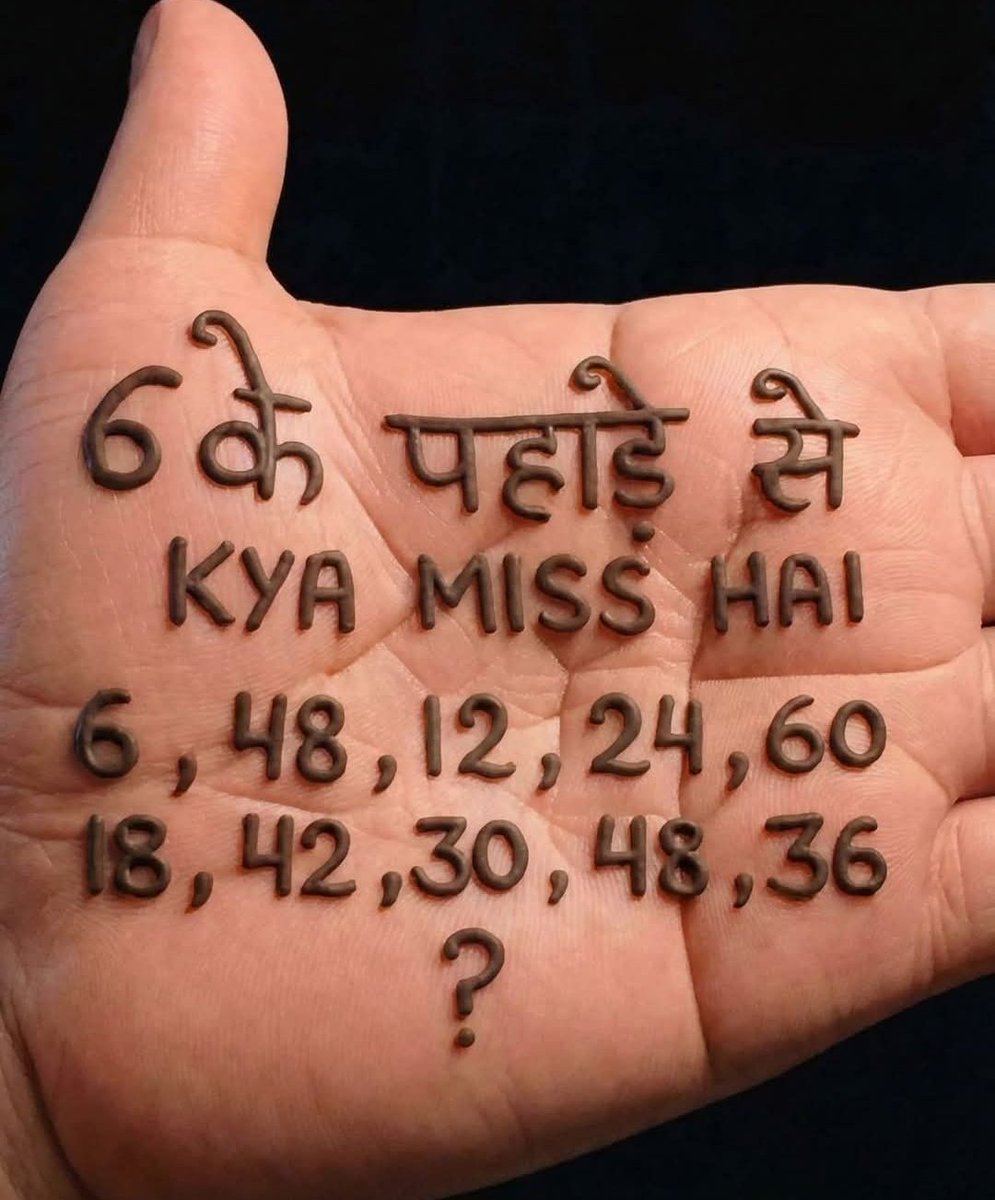 6 के पहाड़े से
KYA MISS HAI
6, 48, 12, 24, 60
18, 42, 30, 48, 36
?